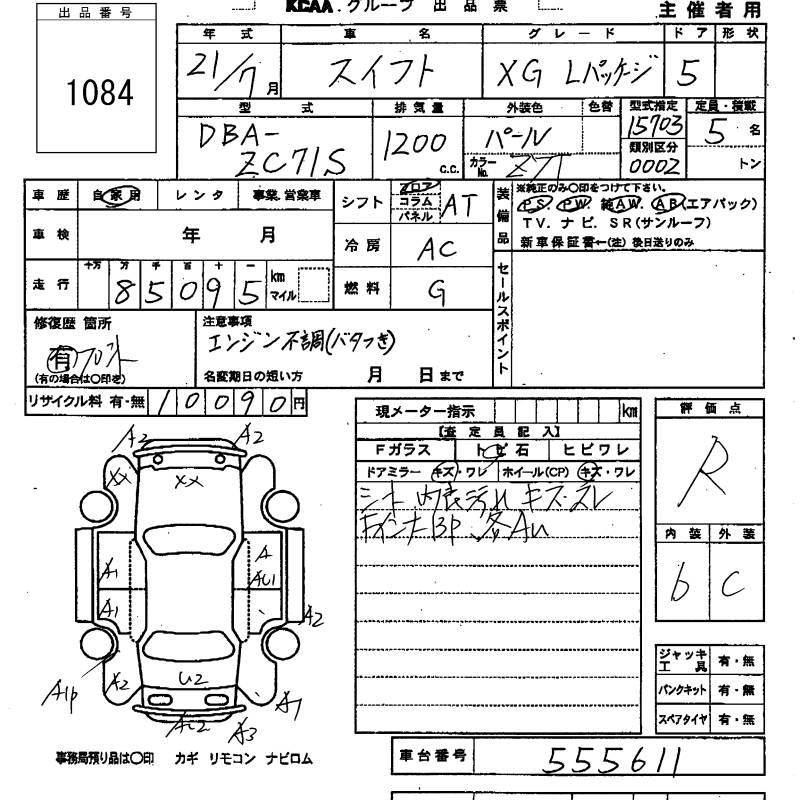 KCAA.グループ 出品票 主催者用
出品番号
1084
年式 車名 グレード ドア 形状
21/7月 スイフト XG Lパッケージ 5
型式 排気量 外装色 色替 型式指定 定員・積載
DBA-ZC71S 1200 c.c. パール カラーNo. Z7T 15703 類別区分 0002 5名 トン
車歴 自家用 レンタ 事業.営業車
車検 年 月
走行 十万 万 千 百 十 一 km マイル
85095
シフト フロア コラム パネル AT
冷房 AC
燃料 G
装備品 ※純正のみ〇印をつけて下さい。
PS. PW. 純AW. AB(エアバック)
TV. ナビ. SR(サンルーフ)
新車保証書←(注)後日送りのみ
セールスポイント
修復歴 箇所
有 フロント
(有の場合は〇印を)
注意事項
エンジン不調(バタつき)
名変期日の短い方 月 日まで
リサイクル料 有・無 10090円
現メーター指示 km
【査定員記入】
Fガラス トビ石 ヒビワレ
ドアミラー キズ・ワレ ホイール(CP) キズ・ワレ
シート 内装汚れ キズ・スレ
BP 各AU
評価点
R
内装 外装
b C
ジャッキ工具 有・無
パンクキット 有・無
スペアタイヤ 有・無
A2 A2
XX XX
A1 A AU1
A1 A2
A1P A2 U2 A1
A3
事務局預り品は〇印 カギ リモコン ナビロム
車台番号 555611